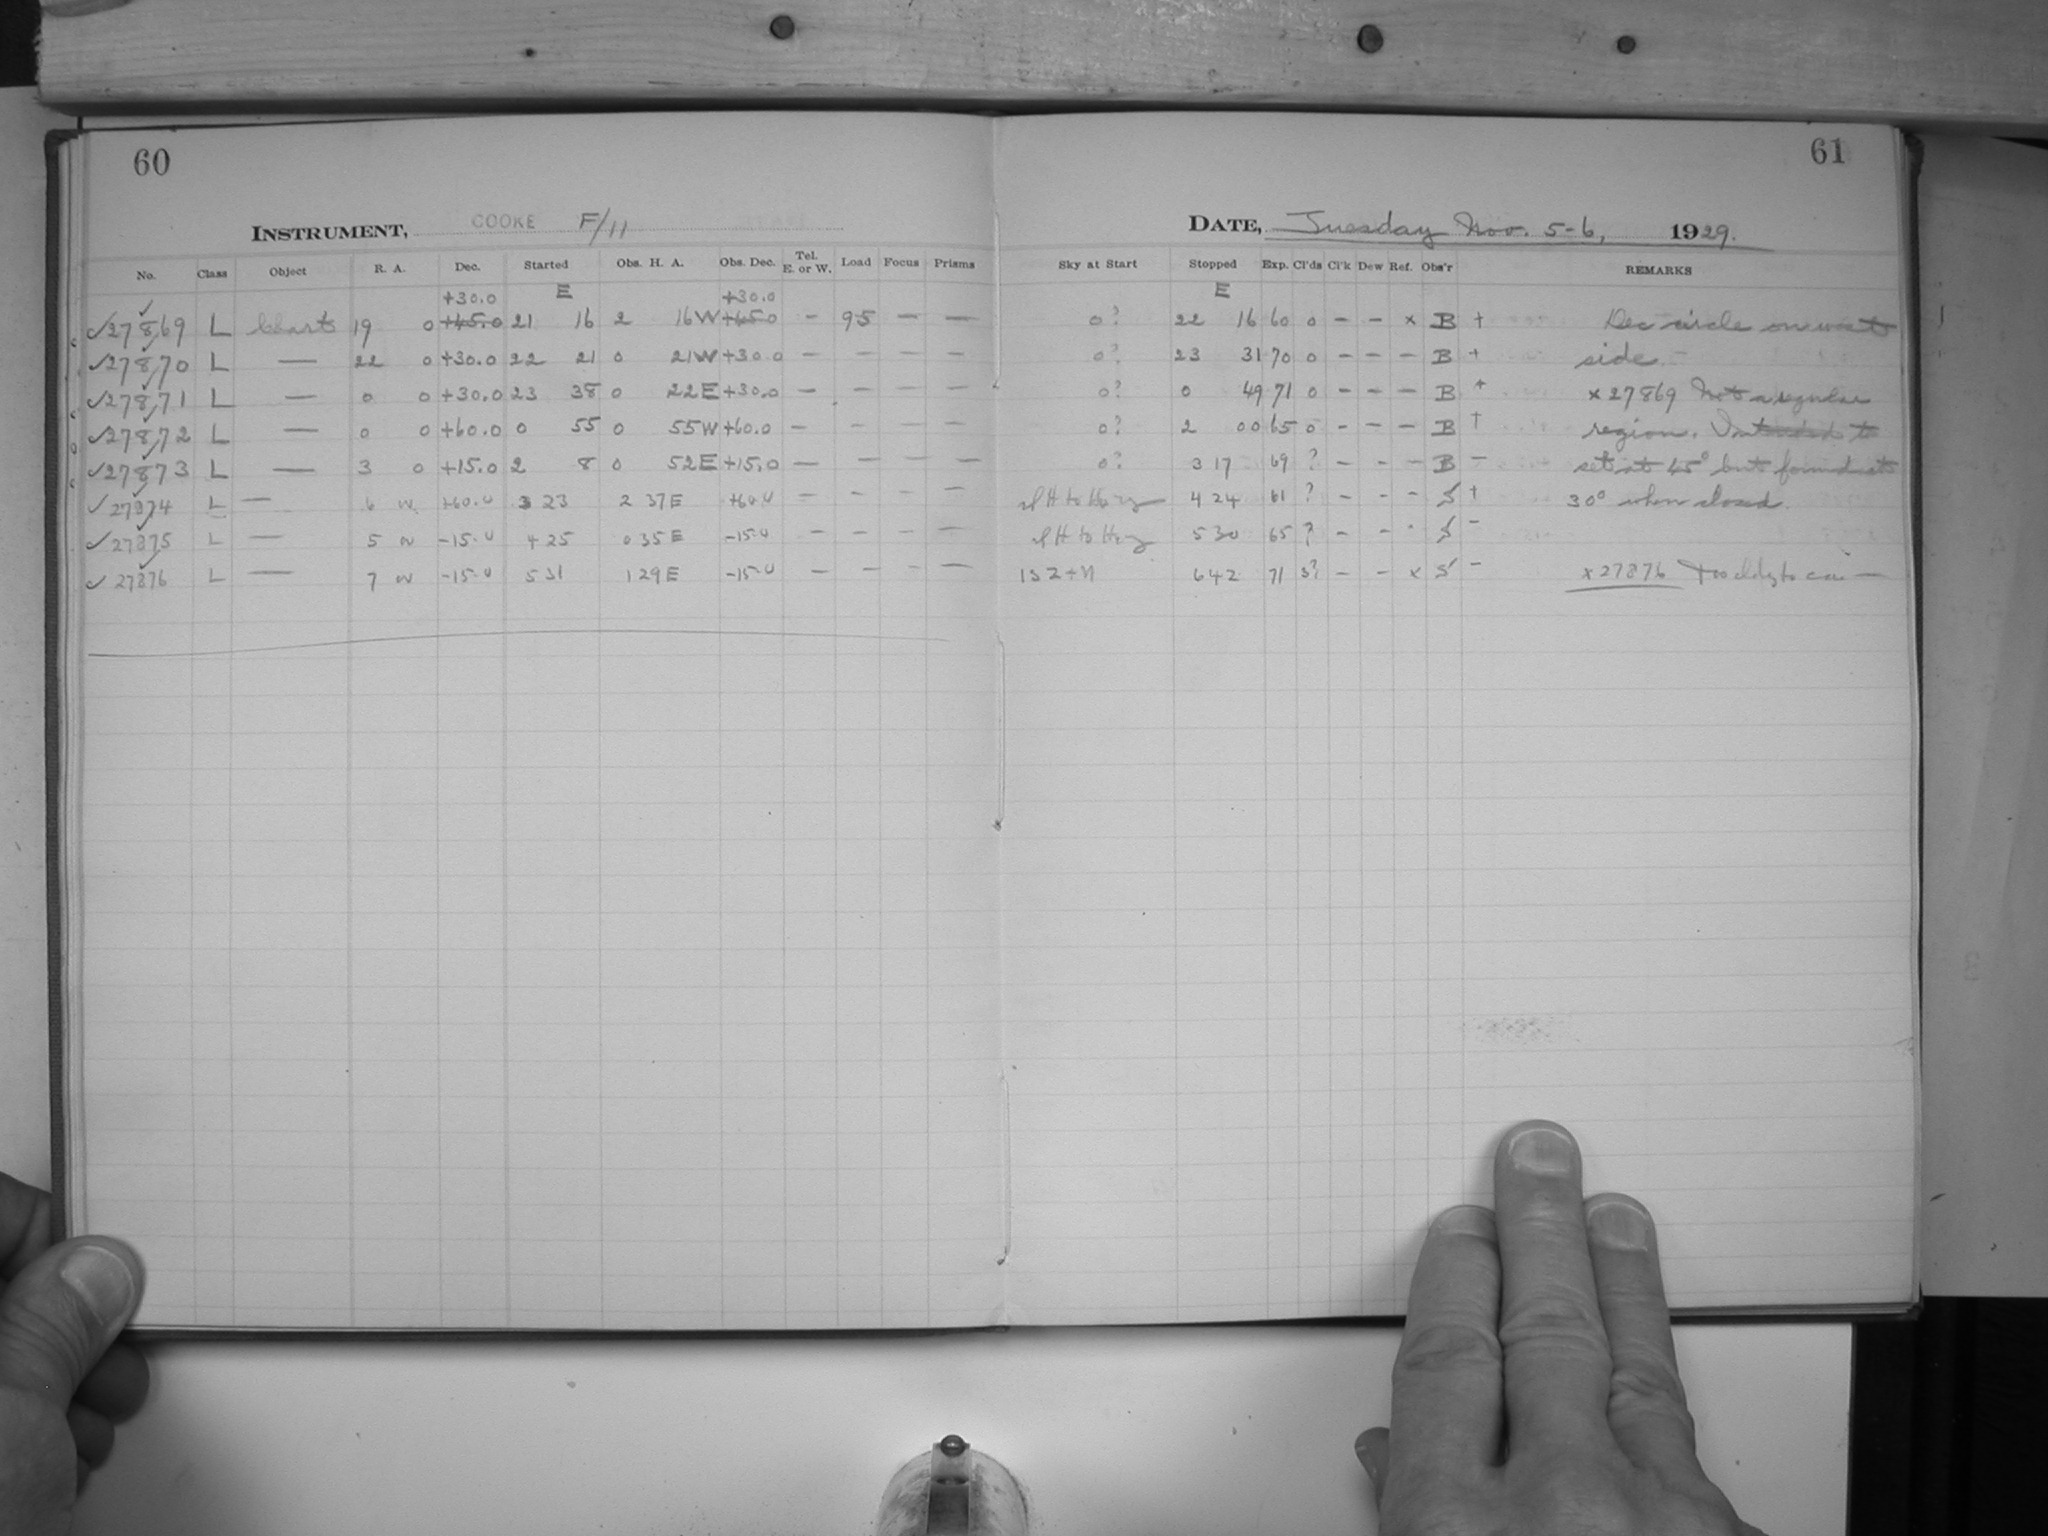 60
61
INSTRUMENT, COOKE F/11
DATE, Tuesday Nov. 5-6, 1929.
No. Class Object R. A. Dec. Started Obs. H. A. Obs. Dec. Tel. E. or W. Load Focus Prisms Sky at Start Stopped Exp. Cl'ds Cl'k Dew Ref. Obs'r REMARKS
+30.0 E +30.0 E
✓27869 L Charts 19 0 +45.0 21 16 2 16W +45.0 – 95 – – 0? 22 16 60 0 – – × B + Dec circle on west
✓27870 L — 22 0 +30.0 22 21 0 21W +30.0 – – – – 0? 23 31 70 0 – – – B + side.
✓27871 L — 0 0 +30.0 23 38 0 22E +30.0 – – – – 0? 0 49 71 0 – – – B + ×27869 Not a regular
✓27872 L — 0 0 +60.0 0 55 0 55W +60.0 – – – – 0? 2 00 65 0 – – – B + region. Intended to
✓27873 L — 3 0 +15.0 2 8 0 52E +15.0 – – – – 0? 3 17 69 ? – – – B – set at 45° but found at
✓27874 L — 6 +60.0 3 23 2 37E +60.0 – – – – 4 24 61 ? – – – S + 30° when closed.
✓27875 L — 5 -15.0 4 25 0 35E -15.0 – – – – 5 30 65 ? – – S –
✓27876 L — 7 -15.0 5 31 1 29E -15.0 – – – – 6 42 71 3? – – × S – ×27876 Too cldy to